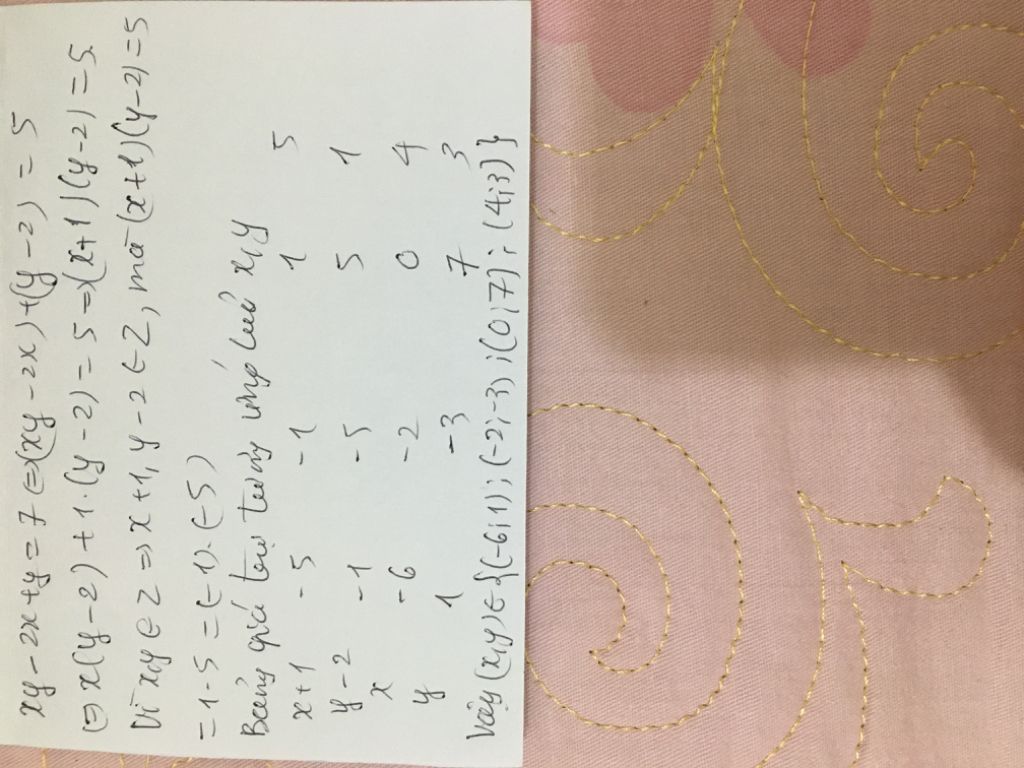 xy - 2x + y = 7 ⇔ (xy - 2x) + (y - 2) = 5
⇔ x(y - 2) + 1.(y - 2) = 5 ⇒ (x + 1)(y - 2) = 5.
Vì x,y ∈ Z ⇒ x + 1, y - 2 ∈ Z, mà (x + 1)(y - 2) = 5
= 1.5 = (-1).(-5)
Bảng giá trị tương ứng của x,y
x+1 -5 -1 1 5
y-2 -1 -5 5 1
x -6 -2 0 4
y 1 -3 7 3
Vậy (x,y) ∈ {(-6;1); (-2;-3); (0;7); (4;3)}